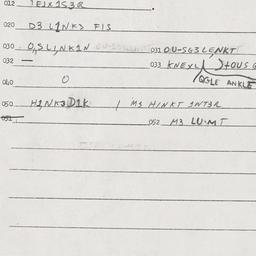 012 TEJX1S3R
020 D3 L1NK> FIS
030 O,SLI,NK1N 031 OU-SG3LENKT
032 — 033 KNEXL )tOUSG
040 O OGLE ANKLE
050 H1NK3D1K / M3 HINKT 1NT3R
051
052 M3 LU-MT